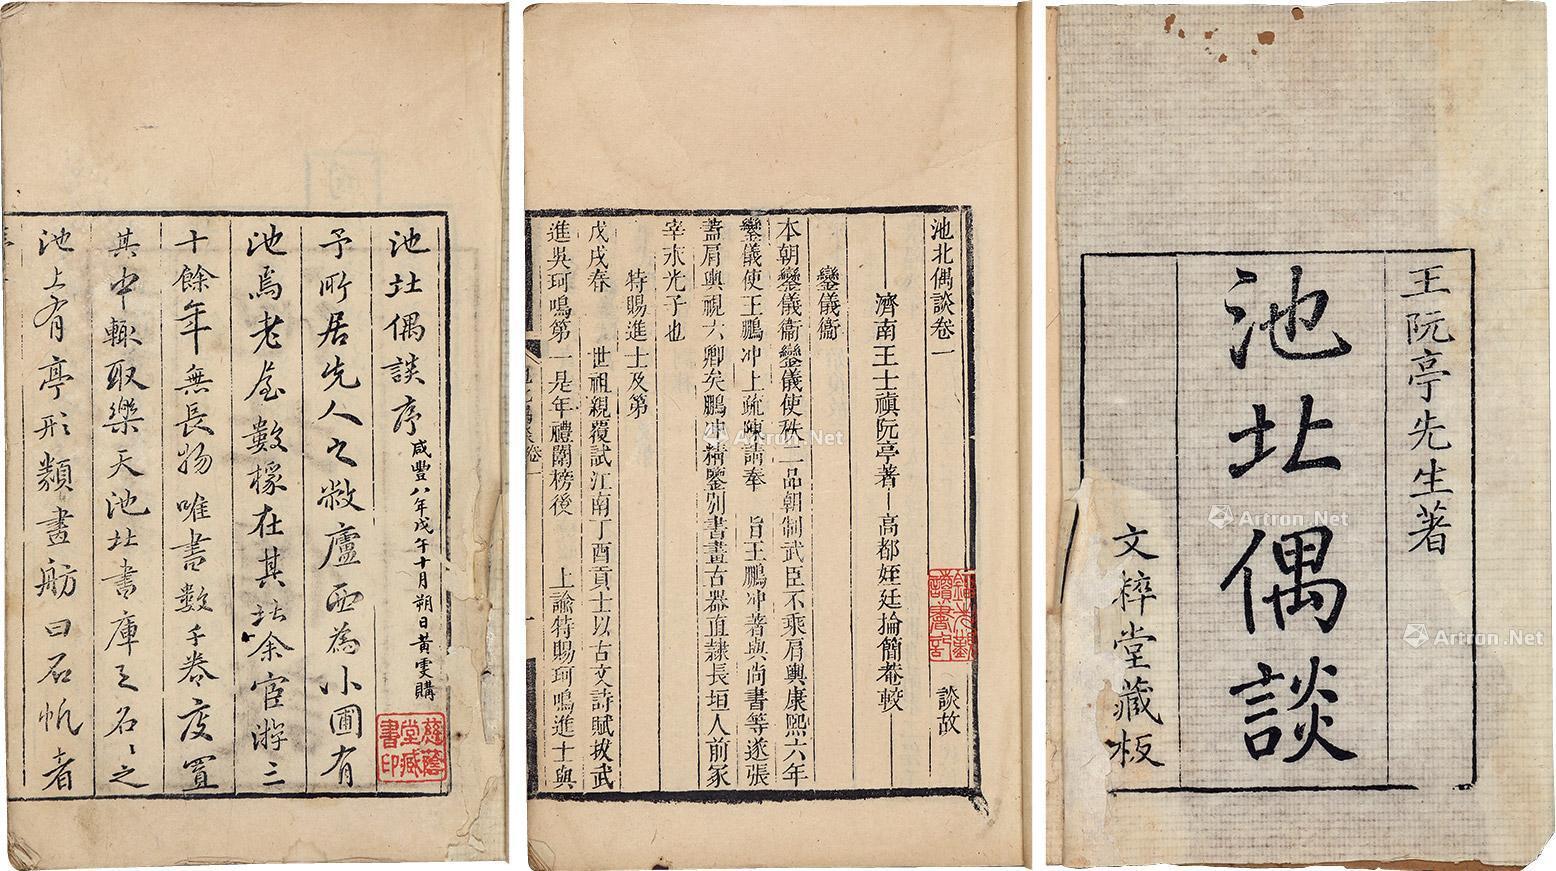 王阮亭先生著
池北偶談
文粹堂藏板
池北偶談卷一
談故
濟南王士禛阮亭著
高都姪廷掄簡菴較
鑾儀衛
本朝鑾儀衛鑾儀使秩二品朝制武臣不乘肩輿康熙六年
鑾儀使王鵬冲上疏陳請奉 旨王鵬冲著與尚書等遂張
蓋肩輿視六卿矣鵬冲精鑒別書畫古器直隸長垣人前冢
宰永光子也
特賜進士及第
戊戌春 世祖親覆試江南丁酉貢士以古文詩賦拔武
進吳珂鳴第一是年禮闈榜後 上諭特賜珂鳴進士與
池北偶談序
咸豐八年戊午十月朔日黃雯購
慈蔭堂藏書印
予所居先人之敝廬西為小圃有
池焉老屋數椽在其北余宦游三
十餘年無長物唯書數千卷庋置
其中輒取樂天池北書庫之名名之
池上有亭形類畫舫曰石帆者
Artron.Net
Artron.Net
Artron.Net